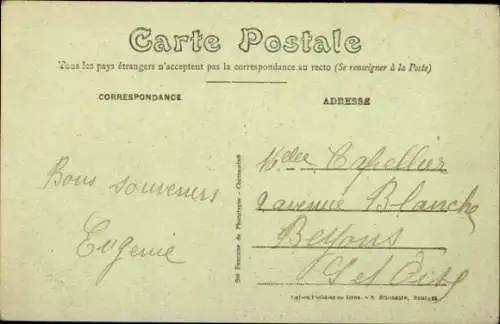 Carte Postale
Tous les pays étrangers n'acceptent pas la correspondance au recto (Se renseigner à la Poste)
CORRESPONDANCE
ADRESSE
Bons souvenirs
Eugenie
Melle Capellier
2 avenue Blanche
Bezons
S et Oise